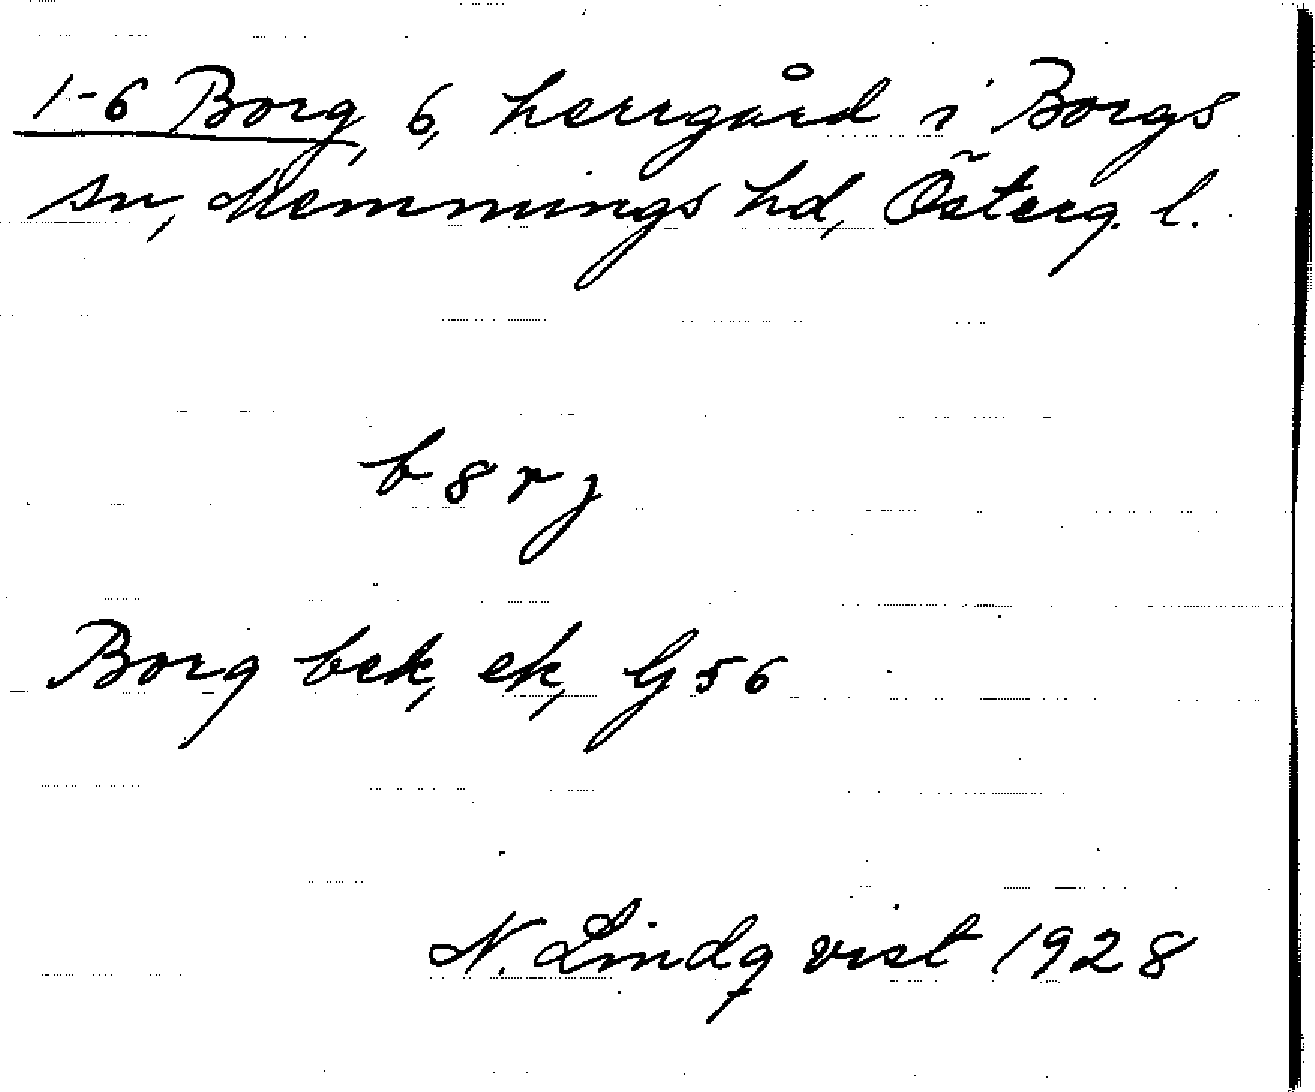 1-6 Borg, 6, herrgård i Borgs
sn, Memmings hd, Österg. l.
b8rj
Borg bek, ek, G 56
N. Lindqvist 1928